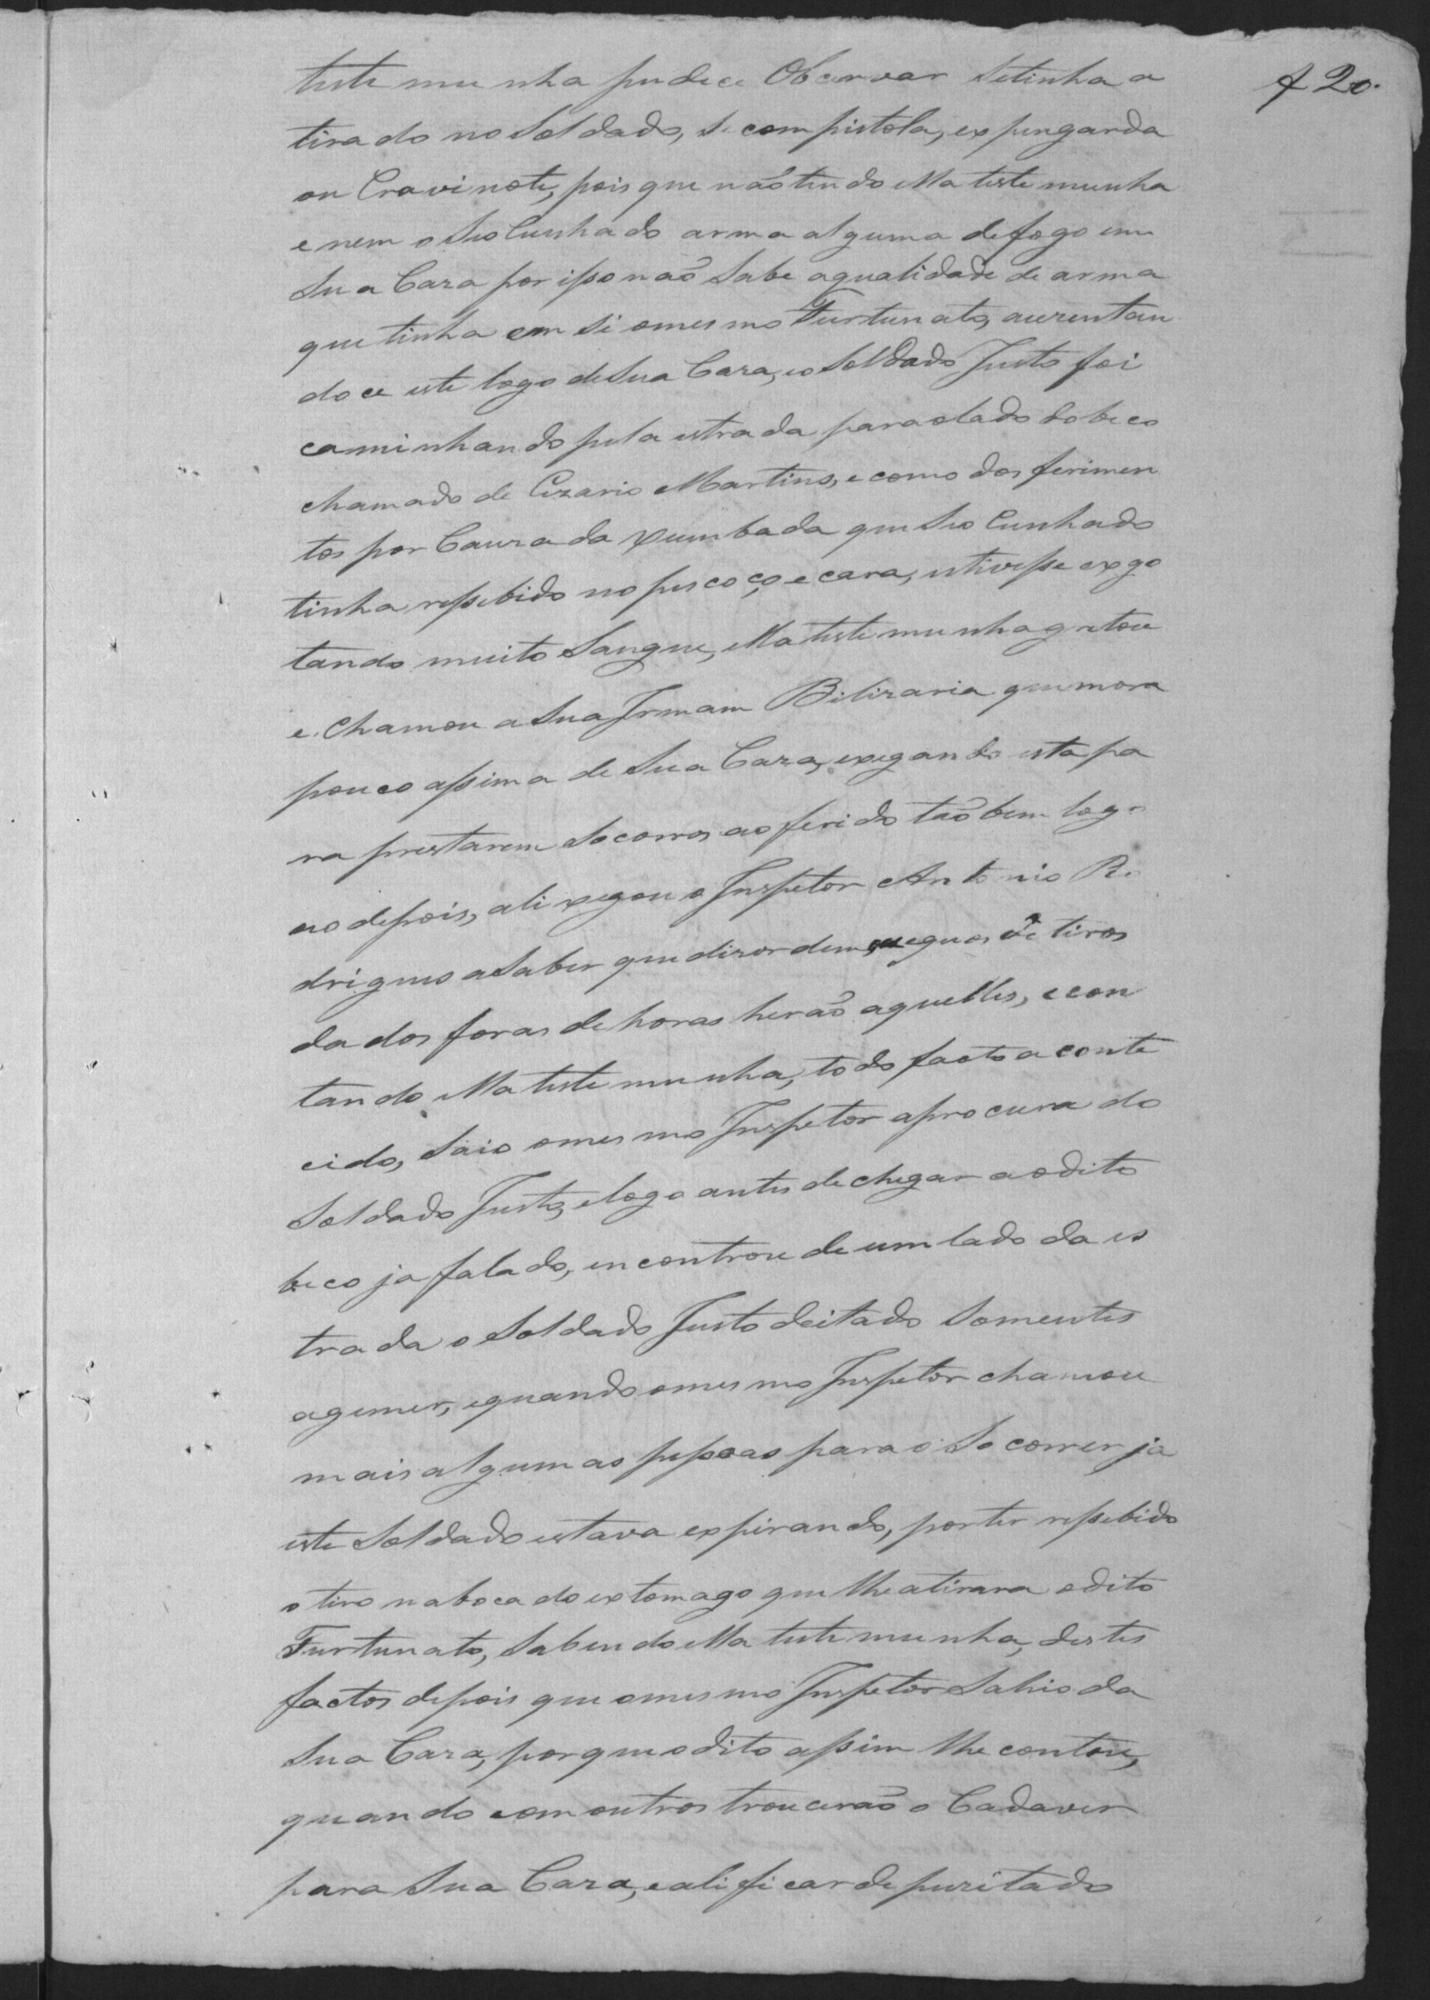 f 20.
testemunha pudece Obcervar setinha a
tirado no Soldado, se com pistola, expengarda
ou Cravinote, pois que não tendo ella testemunha
e nem o seo Cunhado arma alguma de fogo em
Sua Caza por isso não Sabe aqualidade de arma
que tinha em si omesmo Furtunato, auzentan
doce este logo desua Caza, eo Soldado Justo foi
caminhando pela estrada para olado dobeco
chamado de Cezario Martins, e como dos ferimen
tos por Cauza da xumbada que seo Cunhado
tinha ressebido no pescoço e cara, estivesse exgo
tando muito Sangue, ella testemunha gritou
e. Chamou a Sua Irmam Bilizaria que mora
pouco assima de Sua Caza, exegando esta pa
ra prestarem Socorros ao ferido tãobem logo
no depois, ali xegou o Inspetor Antonio Ro
drigues a Saber que dizordem, equos de tiros
dados foras de horas herão aquelles, e con
tando ella testemunha, todo facto aconte
cido, Saio omesmo Inspetor aprocura do
Soldado Justo, elogo antes de chegar aodito
beco ja falado, encontrou de um lado da es
trada o Soldado Justo deitado Somentes
agemer, equando omesmo Inspetor chamou
mais algumas pessoas para o Socorrer ja
este Soldado estava expirando, por ter ressebido
o tiro naboca do extomago que lhe atirara odito
Furtunato, Sabendo ella testemunha, destes
factos depois que omesmo Inspetor Sahio da
Sua Caza, porque odito assim lhe contou,
quando com outros troucerão o Cadaver
para Sua Caza, eali ficar depuzitado